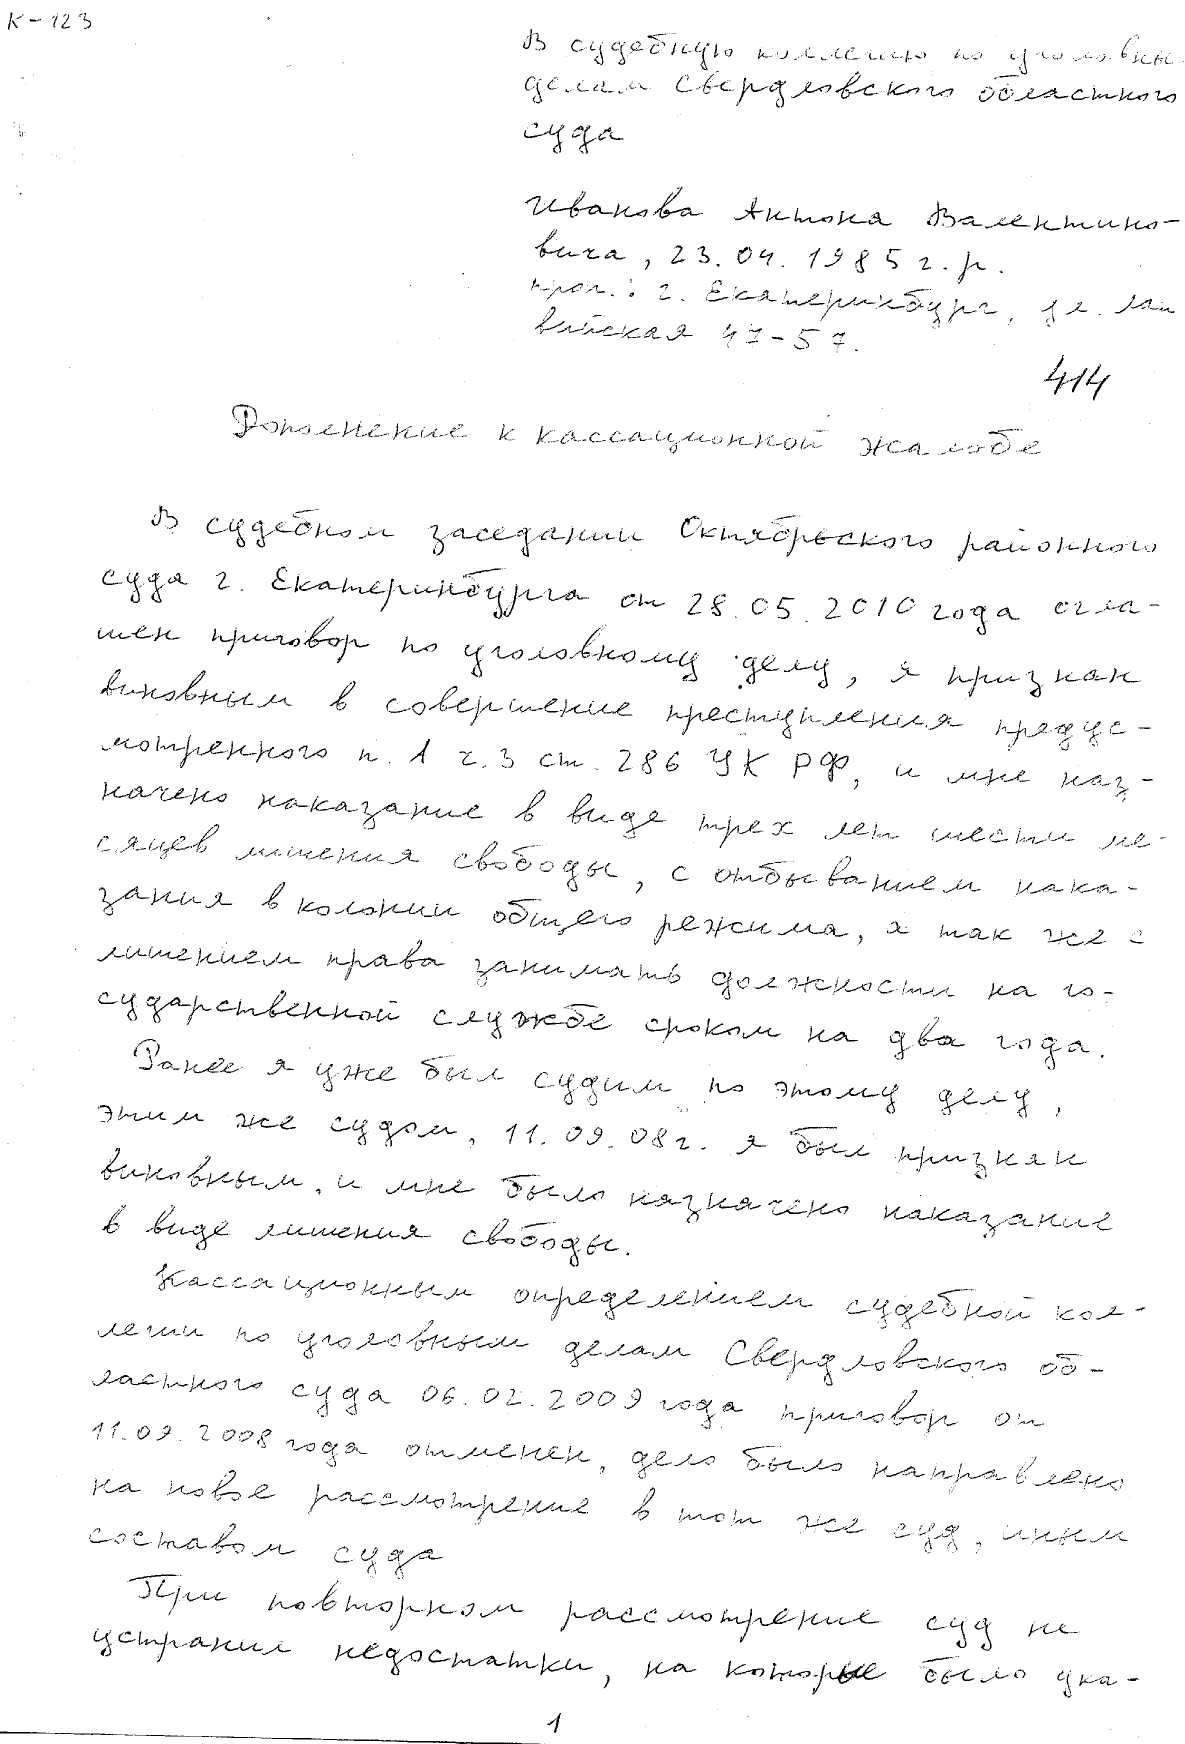 К-123
В судебную коллегию по уголовны
делам Свердловского областного
суда
Иванова Антона Валентино-
вича, 23.04.1985 г.р.
прож.: г. Екатеринбург, ул.
47-57.
414
Дополнение к кассационной жалобе
В судебном заседании Октябрьского районного
суда г. Екатеринбурга от 28.05.2010 года огла-
шен приговор по уголовному делу, я признан
виновным в совершение преступления предус-
мотренного п. 1 ч. 3 ст. 286 УК РФ, и мне наз-
начено наказание в виде трех лет шести ме-
сяцев лишения свободы, с отбыванием нака-
зания в колонии общего режима, а так же с
лишением права занимать должности на го-
сударственной службе сроком на два года.
Ранее я уже был судим по этому делу,
этим же судом, 11.09.08г. я был признан
виновным, и мне было назначено наказание
в виде лишения свободы.
Кассационным определением судебной кол-
легии по уголовным делам Свердловского об-
ластного суда 06.02.2009 года приговор от
11.09.2008 года отменен, дело было направлено
на новое рассмотрение в тот же суд, иным
составом суда
При повторном рассмотрение суд не
устранил недостатки, на которые было ука-
1